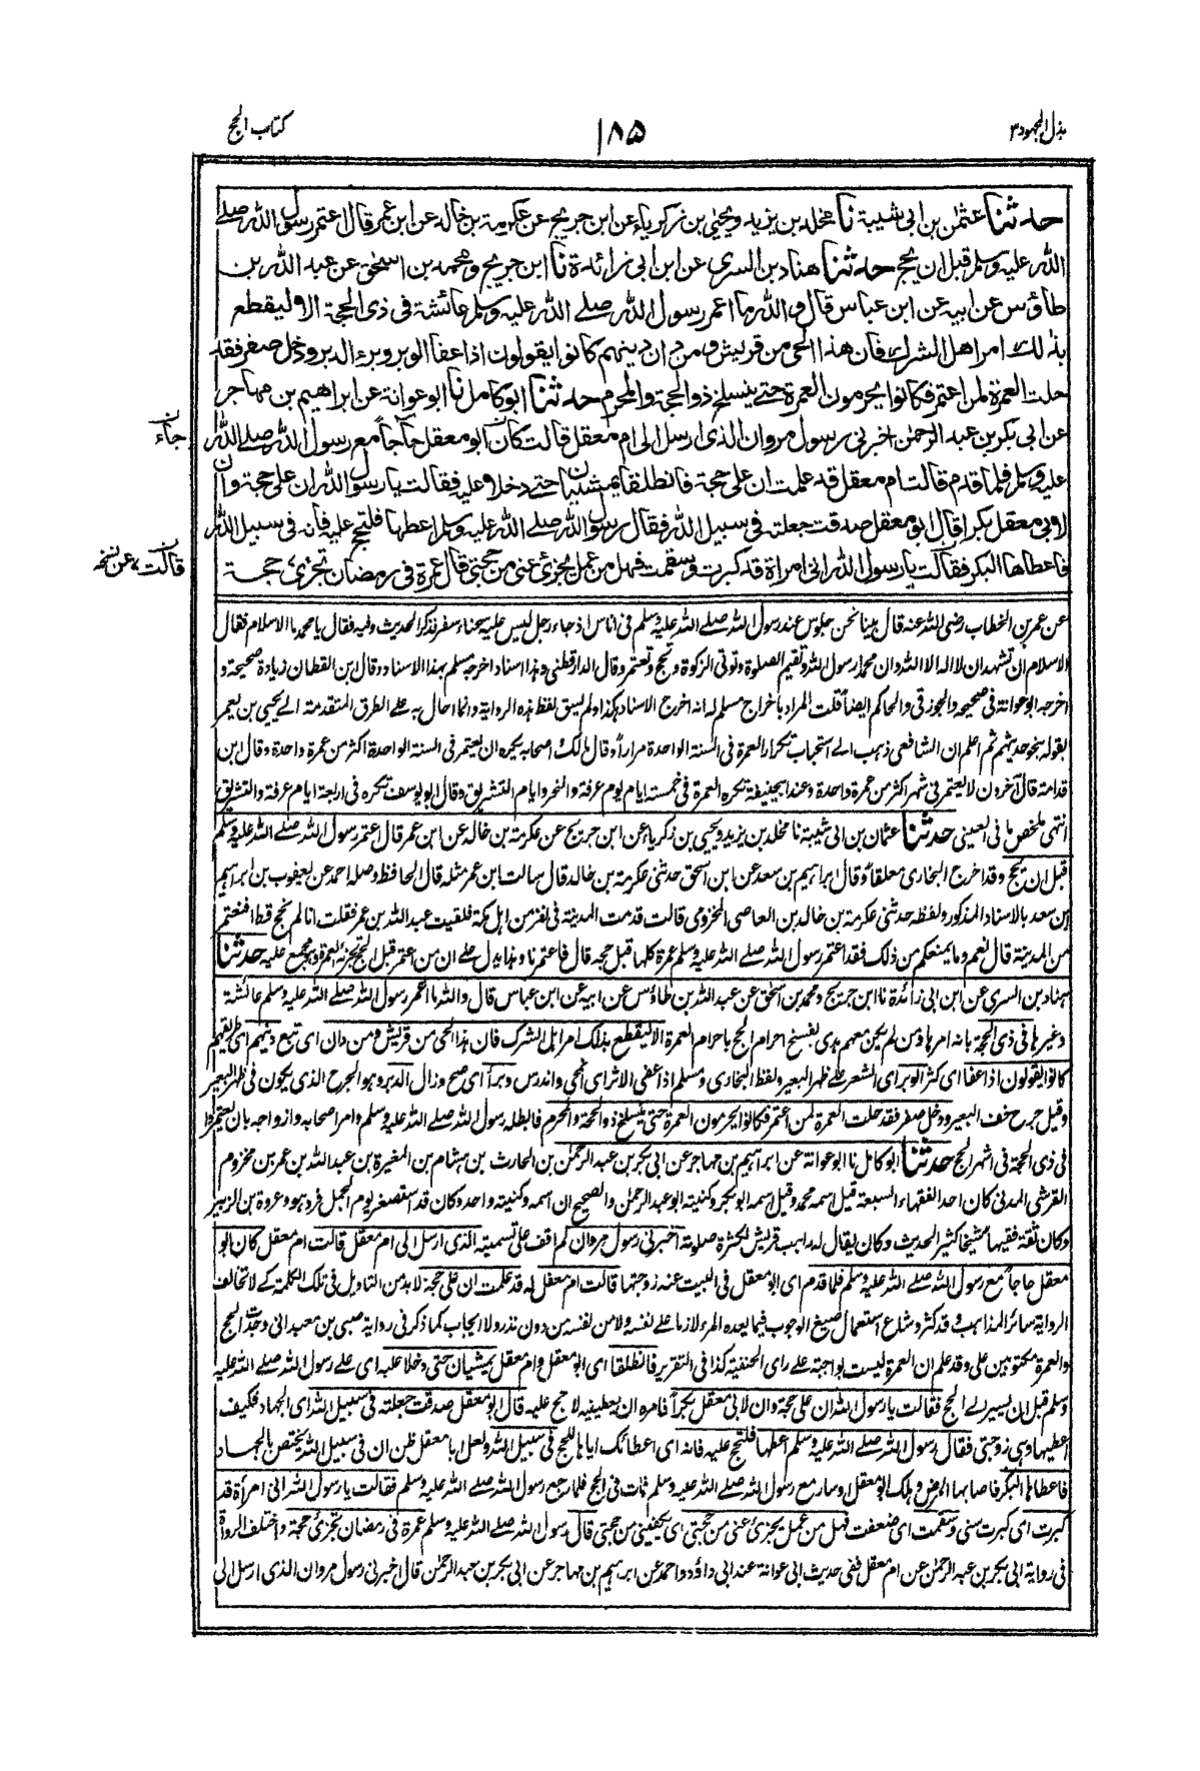 بذل المجهود ٣
١٨٥
كتاب الحج
حدثنا عثمٰن بن ابى شيبة نا مخلد بن يزيد ويحيٰى بن زكرياء عن ابن جريج عن عكرمة بن خالد عن ابن عمر قال اعتمر رسول الله صلے
الله عليه وسلم قبل ان يحج حدثنا هناد بن السرى عن ابن ابى زائدة نا ابن جريج ومحمد بن اسحٰق عن عبد الله بن
طاؤس عن ابيه عن ابن عباس قال والله ما اعمر رسول الله صلے الله عليه وسلم عائشة فى ذى الحجة الا ليقطع
بذلك امر اهل الشرك فان هذا الحى من قريش ومن دان دينهم كانوا يقولون اذا عفا الوبر وبرء الدبر ودخل صفر فقد
حلت العمرة لمن اعتمر فكانوا يحرمون العمرة حتے ينسلخ ذو الحجة والمحرم حدثنا ابو كامل نا ابو عوانة عن ابراهيم بن مهاجر
عن ابى بكر بن عبد الرحمٰن اخبرنى رسول مروان الذى ارسل الى ام معقل قالت كان ابو معقل حآجاً مع رسول الله صلے الله
جاء ن
عليه وسلم فلما قدم قالت ام معقل قد علمت ان على حجة فانطلقا يمشيان حتے دخلا عليه فقالت يا رسول الله ان على حجة وان
لابى معقل بكرا قال ابو معقل صدقت جعلته فى سبيل الله فقال رسول الله صلے الله عليه وسلم اعطها فلتحج عليه فانه فى سبيل الله
فاعطاها البكر فقالت يا رسول الله انى امرأة قد كبرت وسقمت فهل من عمل يجزئ عنى من حجتى قال عمرة فى رمضان تجزئ حجة
قالت، عن نسخه
عن عمر بن الخطاب رضى الله عنه قال بينا نحن جلوس عند رسول الله صلے الله عليه وسلم فى اناس اذ جاء رجل ليس عليه سحناء سفر فذكر الحديث وفيه فقال يا محمد ما الاسلام فقال
الاسلام ان تشهد ان لا اله الا الله وان محمدا رسول الله وتقيم الصلوة وتوتى الزكوة وتحج وتعتمر وقال الدارقطنى وهذا اسناد اخرجه مسلم بهذا الاسناد وقال ابن القطان زيادة صحيحة و
اخرجه ابو عوانة فى صحيحه والجوزقى والحاكم ايضاً قلت المراد باخراج مسلم له انه اخرج الاسناد هكذا ولم يسق لفظ هذه الرواية وانما احال به على الطرق المتقدمة الے يحيى بن يعمر
بقوله بنحو حديثهم ثم اعلم ان الشافعى ذهب الے استحباب تكرار العمرة فى السنة الواحدة مرارا وقال مالك واصحابه يكره ان يعتمر فى السنة الواحدة اكثر من عمرة واحدة وقال ابن
قدامة قال آخرون لا يعتمر فى شهر اكثر من عمرة واحدة وعند ابى حنيفة تكره العمرة فى خمسة ايام يوم عرفة والنحر وايام التشريق وقال ابو يوسف تكره فى اربعة ايام عرفة والتشريق
انتهى ملخص ما فى العينى حدثنا عثمان بن ابى شيبة نا مخلد بن يزيد ويحيى بن زكريا عن ابن جريج عن عكرمة بن خالد عن ابن عمر قال اعتمر رسول الله صلے الله عليه وسلم
قبل ان يحج وقد اخرج البخارى معلقا وقال ابراهيم بن سعد عن ابن اسحق حدثنى عكرمة بن خالد قال سالت ابن عمر مثله قال الحافظ وصله احمد عن يعقوب بن ابراهيم
ابن سعد بالاسناد المذكور ولفظه حدثنى عكرمة بن خالد بن العاصى المخزومى قالت قدمت المدينة فى نفر من اهل مكة فلقيت عبد الله بن عمر فقلت انا لم نحج قط افنعتمر
من المدينة قال نعم وما يمنعكم من ذلك فقد اعتمر رسول الله صلے الله عليه وسلم عمرة كلها قبل حجه قال فاعتمرنا وهذا يدل على ان من اعتمر قبل الحج تجزئه العمرة ومجمع عليه حدثنا
هناد بن السرى عن ابن ابى زائدة نا ابن جريج ومحمد بن اسحٰق عن عبد الله بن طاؤس عن ابيه عن ابن عباس قال والله ما اعمر رسول الله صلے الله عليه وسلم عائشة
وغيرها فى ذى الحجة بانه امرها ومن لم يكن معهم هدى بفسخ احرام الحج باحرام العمرة الا ليقطع بذلك امر اهل الشرك فان هذا الحى من قريش ومن دان اى تبع دينهم اى طريقتهم
كانوا يقولون اذا عفا اى كثر الوبر اى الشعر على ظهر البعير ولفظ البخارى ومسلم اذا عفى الاثر اى انمحى واندرس وبرأ اى صح وزال الدبر وهو الجرح الذى يكون فى ظهر البعير
وقيل جرح خف البعير ودخل صفر فقد حلت العمرة لمن اعتمر فكانوا يحرمون العمرة حتى ينسلخ ذو الحجة والمحرم فابطله رسول الله صلے الله عليه وسلم وامر اصحابه وازواجه بان يعتمروا
فى ذى الحجة فى اشهر الحج حدثنا ابو كامل نا ابو عوانة عن ابراهيم بن مهاجر عن ابى بكر بن عبد الرحمٰن بن الحارث بن هشام بن المغيرة بن عبد الله بن عمر بن مخزوم
القرشى المدنى كان احد الفقهاء السبعة قيل اسمه محمد وقيل اسمه ابو بكر وكنيته ابو عبد الرحمٰن والصحيح ان اسمه وكنيته واحد وكان قد استصغر يوم الجمل فرد هو وعروة بن الزبير
وكان ثقة فقيها شيخا كثير الحديث وكان يقال له راهب قريش لكثرة صلوته اخبرنى رسول مروان لم اقف على تسميته الذى ارسل الى ام معقل قالت ام معقل كان ابو
معقل حاجاً مع رسول الله صلے الله عليه وسلم فلما قدم اى ابو معقل فى البيت عند زوجتها قالت ام معقل له قد علمت ان على حجة لابد من التاويل فى تلك الكلمة كے لا تخالف
الرواية سائر المذاهب وقد كثر وشاع استعمال صيغ الوجوب فيما يعده المرء لازما على نفسه ولا من نفسه من دون نذر ولا ايجاب كما ذكر فى رواية صبى بن معبد انى وجدت الحج
والعمرة مكتوبين على وقد علم ان العمرة ليست بواجبة على راى الحنفية كذا فى التقرير فانطلقا اى ابو معقل وام معقل يمشيان حتى دخلا عليه اى على رسول الله صلے الله عليه
وسلم قبل ان يسير الے الحج فقالت يا رسول الله ان على حجة وان لابى معقل بكراً فامره ان يعطينيه لاحج عليه قال ابو معقل صدقت جعلته فى سبيل الله اى الجهاد فكيف
اعطيها وهى زوجتى فقال رسول الله صلے الله عليه وسلم اعطها فلتحج عليه فانه اى اعطائك اياها للحج فى سبيل الله ولعل ابا معقل ظن ان فى سبيل الله يختص بالجهاد
فاعطاها البكر فاصابها المرض وهلك ابو معقل او سار مع رسول الله صلے الله عليه وسلم فمات فى الحج فلما رجع رسول الله صلے الله عليه وسلم فقالت يا رسول الله انى امرأة قد
كبرت اى كبرت سنى وسقمت اى ضعفت فهل من عمل يجزئ عنى من حجتى اى يكفينى من حجتى قال رسول الله صلے الله عليه وسلم عمرة فى رمضان تجزئ حجة واختلف الرواة
فى رواية ابى بكر بن عبد الرحمٰن عن ام معقل ففى حديث ابى عوانة عند ابى داؤد واحمد عن ابراهيم بن مهاجر عن ابى بكر بن عبد الرحمٰن قال اخبرنى رسول مروان الذى ارسل الى